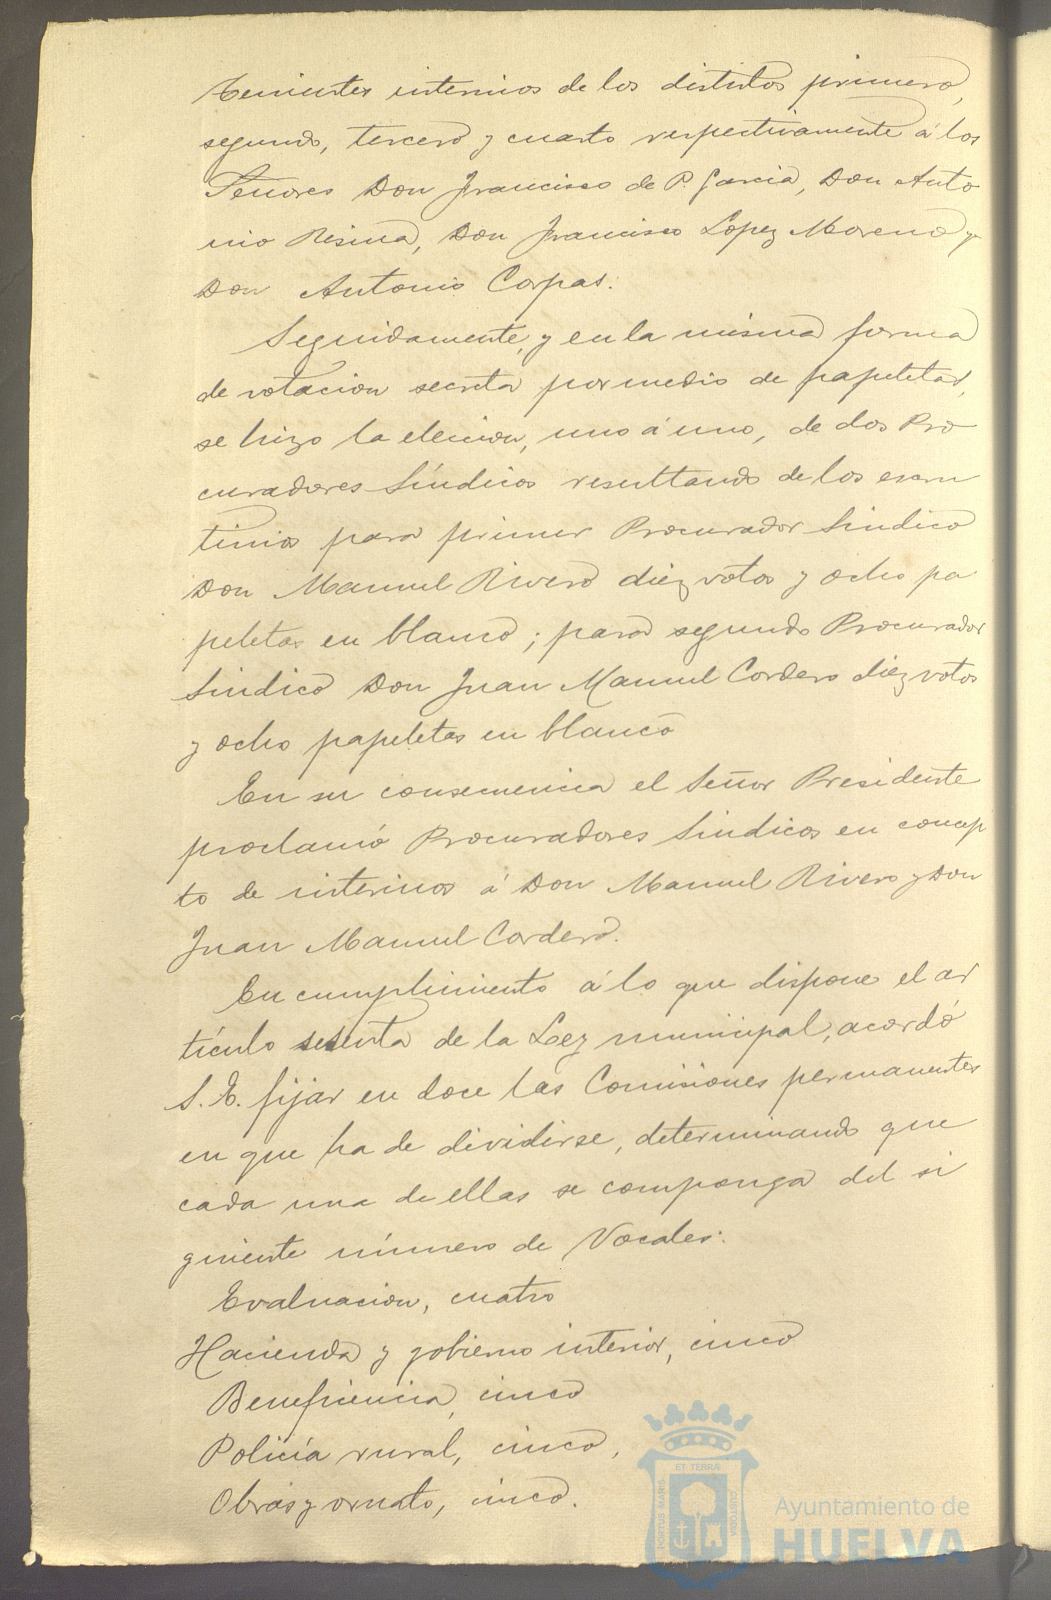 Tenientes interinos de los distritos primero,
segundo, tercero y cuarto respectivamente á los
Señores Don Francisco de P. Garcia, Don Anto
nio Resina, Don Francisco Lopez Moreno y
Don Antonio Corpas.
Seguidamente, y en la misma forma
de votacion secreta por medio de papeletas,
se hizo la eleccion, uno á uno, de dos Pro
curadores Síndicos resultando de los escru
tinios para primer Procurador Sindico
Don Manuel Rivero diez votos y ocho pa
peletas en blanco; para segundo Procurador
Sindico Don Juan Manuel Cordero diez votos
y ocho papeletas en blanco
En su consecuencia el Señor Presidente
proclamó Procuradores Sindicos en concep
to de interinos á Don Manuel Rivero y Don
Juan Manuel Cordero.
En cumplimiento á lo que dispone el ar
tículo sesenta de la Ley municipal, acordó
S. E. fijar en doce las Comisiones permanentes
en que ha de dividirse, determinando que
cada una de ellas se componga del si
guiente número de Vocales:
Evaluacion, cuatro
Hacienda y gobierno interior, cinco
Beneficencia, cinco
Policía rural, cinco,
Obras y ornato, cinco.
PORTUS MARIS ET TERRAE CUSTODIA
Ayuntamiento de
HUELVA